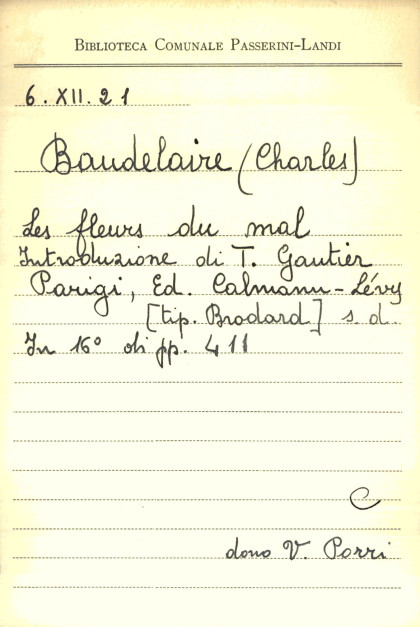 BIBLIOTECA COMUNALE PASSERINI-LANDI
6. XII. 21
Baudelaire (Charles)
Les fleurs du mal
Introduzione di T. Gautier
Parigi, Ed. Calmann-Lévy
[tip. Brodard] s. d.
In 16° di pp. 411
C
dono V. Porri